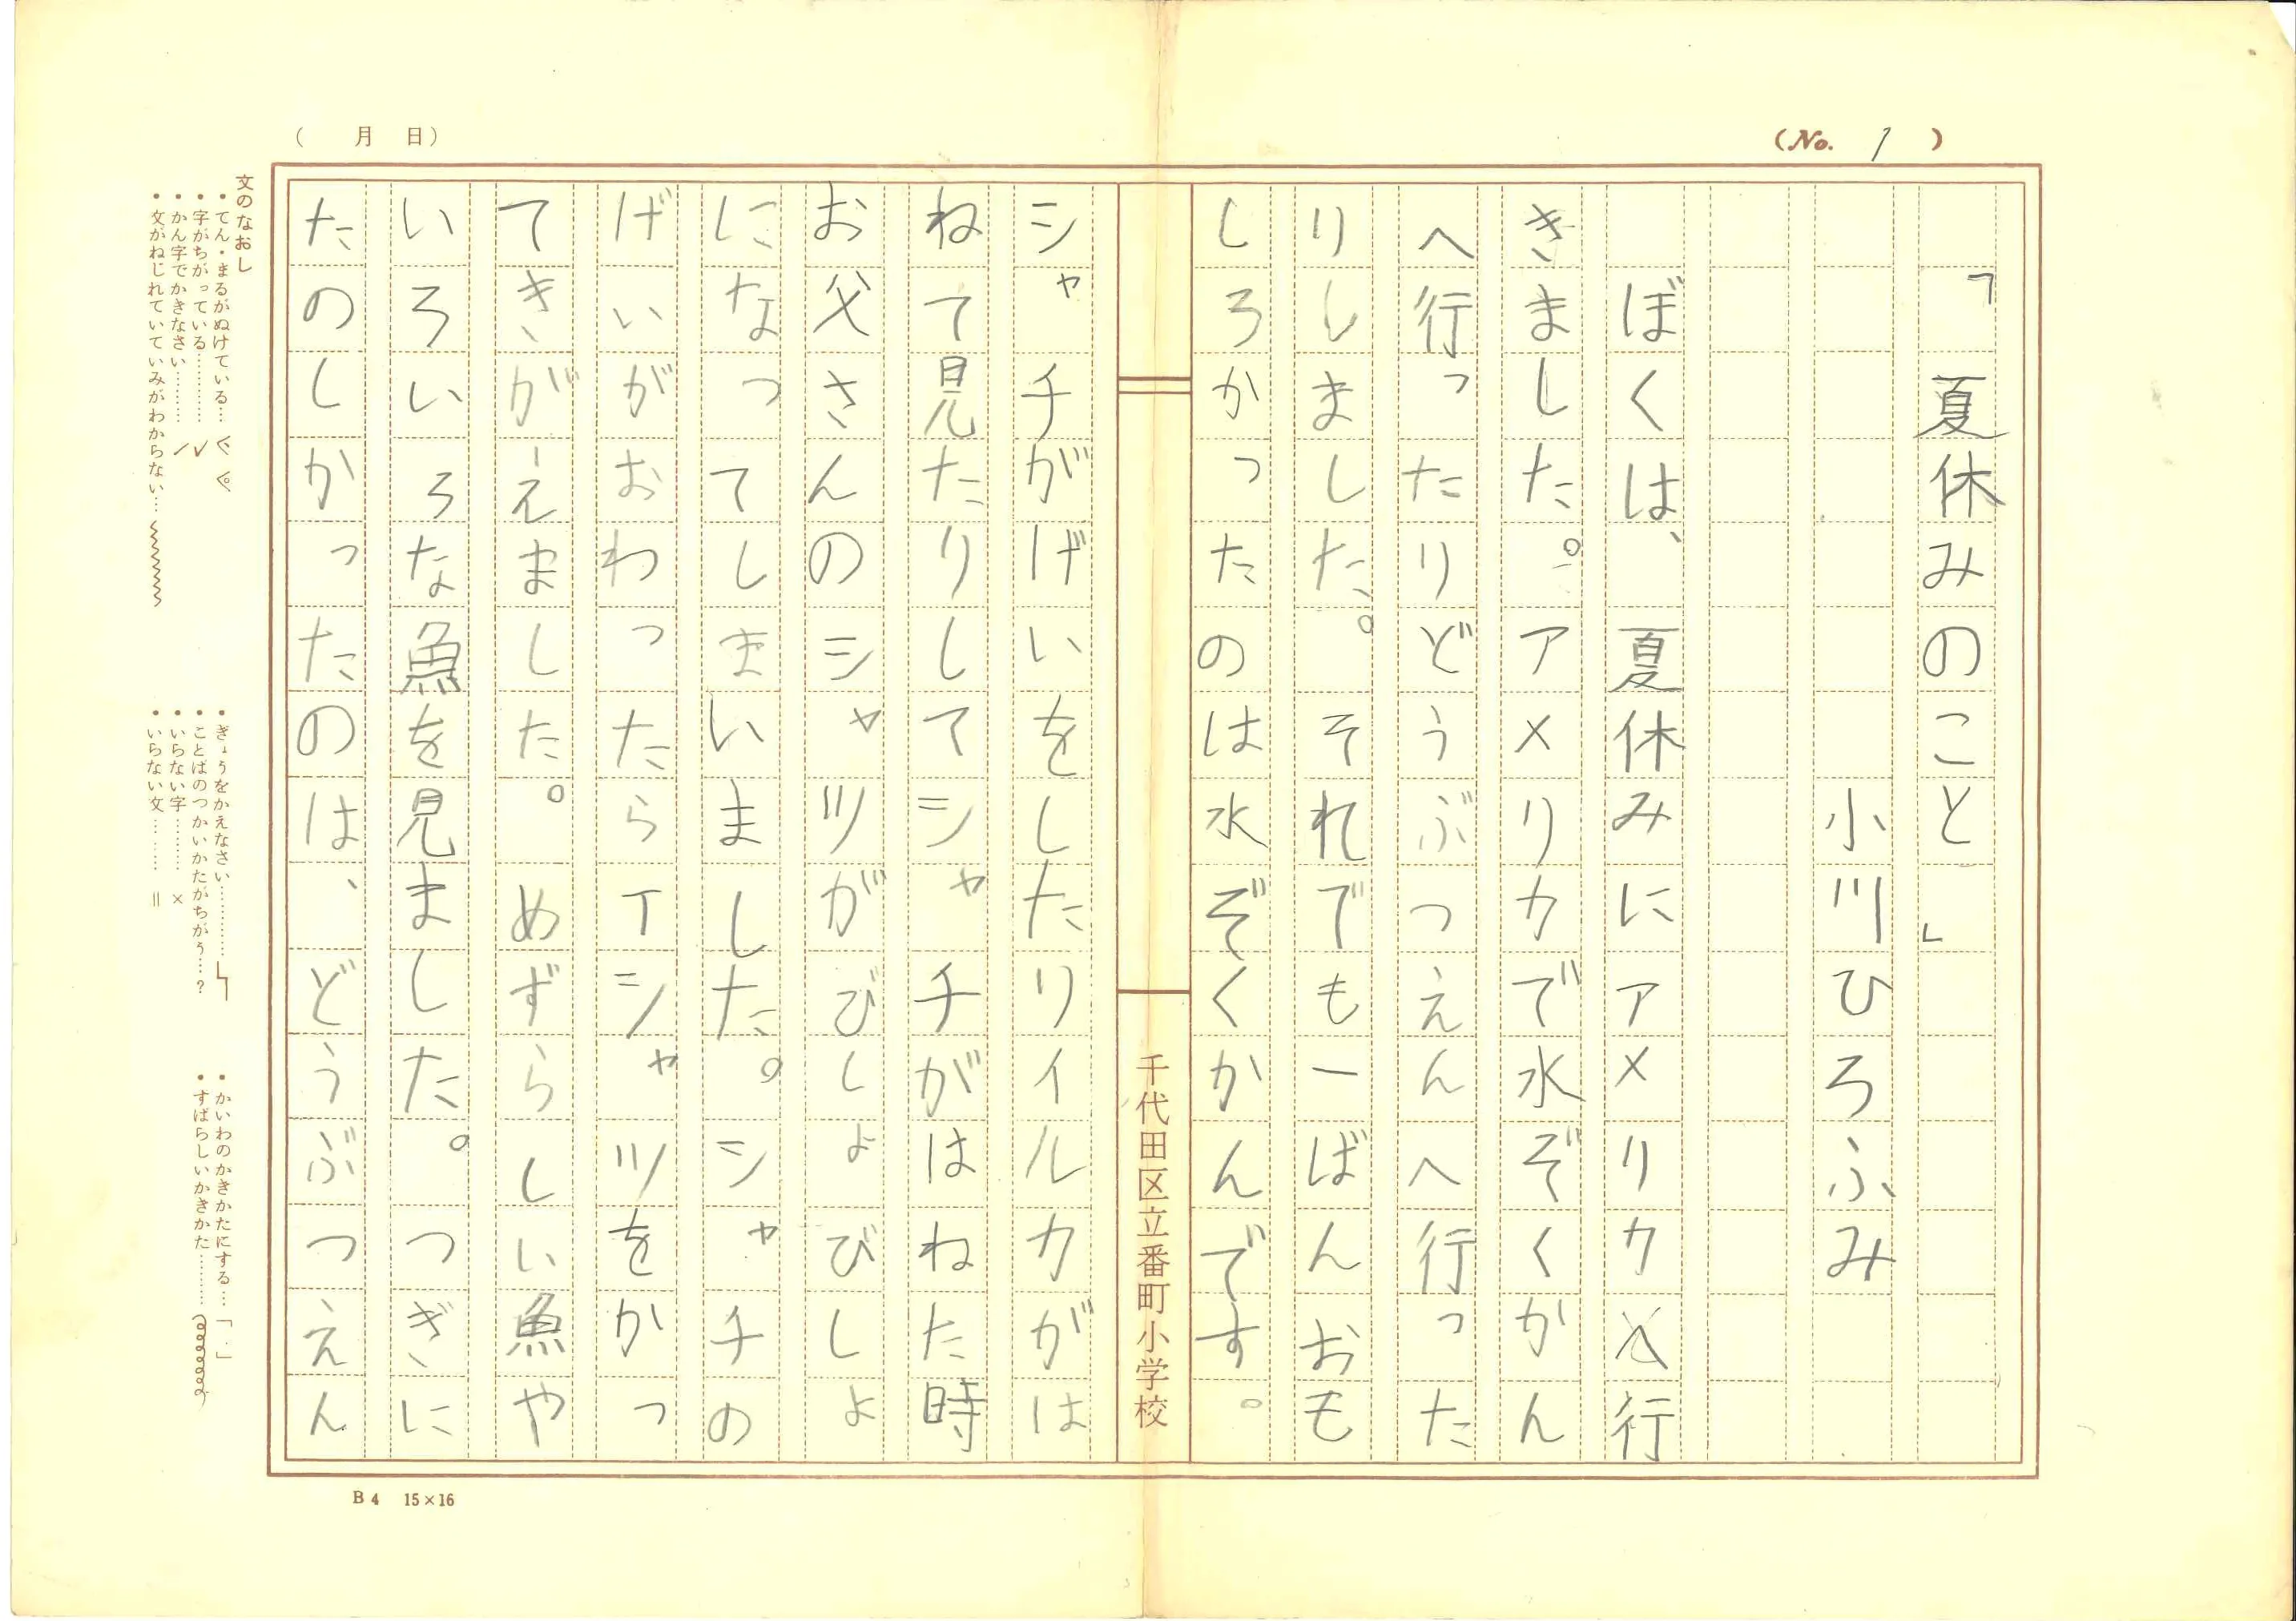 (No. 1 )
「夏休みのこと」
小川ひろふみ
ぼくは、夏休みにアメリカ行
きました。アメリカで水ぞくかん
へ行ったりどうぶつえんへ行った
りしました。それでも一ばんおも
しろかったのは水ぞくかんです。
千代田区立番町小学校
シャチがげいをしたりイルカがは
ねて見たりしてシャチがはねた時
お父さんのシャツがびしょびしょ
になってしまいました。シャチの
げいがおわったらTシャツをかっ
てきがえました。めずらしい魚や
いろいろな魚を見ました。つぎに
たのしかったのは、どうぶつえん
(　月　日)
文のなおし
・てん・まるがぬけている…
・字がちがっている…………✓
・かん字でかきなさい…………
・文がねじれていていみがわからない…
・ぎょうをかえなさい…………
・ことばのつかいかたがちがう…?
・いらない字…………×
・いらない文…………॥
・かいわのかきかたにする…「 」
・すばらしいかきかた…………
B4 15×16